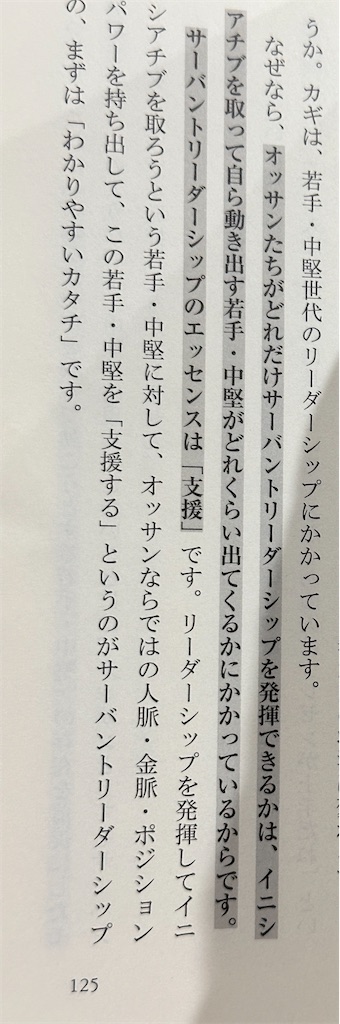 うか。カギは、若手・中堅世代のリーダーシップにかかっています。
なぜなら、オッサンたちがどれだけサーバントリーダーシップを発揮できるかは、イニシ
アチブを取って自ら動き出す若手・中堅がどれくらい出てくるかにかかっているからです。
サーバントリーダーシップのエッセンスは「支援」です。リーダーシップを発揮してイニ
シアチブを取ろうという若手・中堅に対して、オッサンならではの人脈・金脈・ポジション
パワーを持ち出して、この若手・中堅を「支援する」というのがサーバントリーダーシップ
の、まずは「わかりやすいカタチ」です。
125